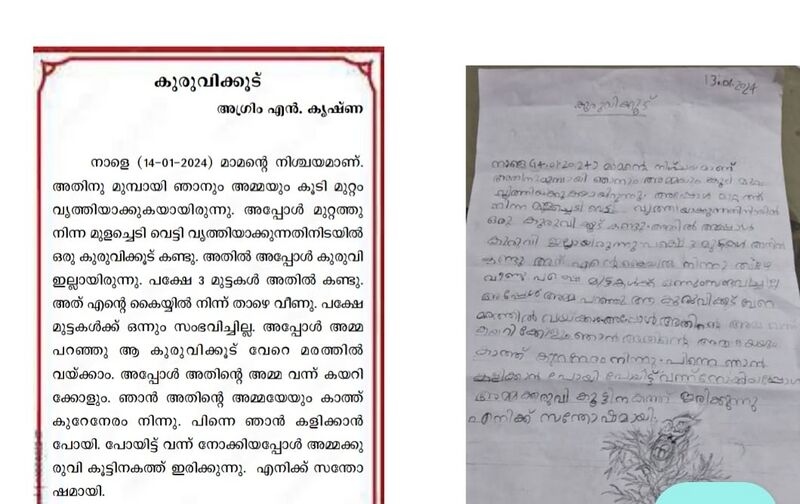 കുരുവിക്കൂട്
അഗ്രിം എൻ. കൃഷ്ണ
നാളെ (14-01-2024) മാമന്റെ നിശ്ചയമാണ്.
അതിനു മുമ്പായി ഞാനും അമ്മയും കൂടി മുറ്റം
വൃത്തിയാക്കുകയായിരുന്നു. അപ്പോൾ മുറ്റത്തു
നിന്ന മുളച്ചെടി വെട്ടി വൃത്തിയാക്കുന്നതിനിടയിൽ
ഒരു കുരുവിക്കൂട് കണ്ടു. അതിൽ അപ്പോൾ കുരുവി
ഇല്ലായിരുന്നു. പക്ഷേ 3 മുട്ടകൾ അതിൽ കണ്ടു.
അത് എന്റെ കൈയ്യിൽ നിന്ന് താഴെ വീണു. പക്ഷേ
മുട്ടകൾക്ക് ഒന്നും സംഭവിച്ചില്ല. അപ്പോൾ അമ്മ
പറഞ്ഞു ആ കുരുവിക്കൂട് വേറെ മരത്തിൽ
വയ്ക്കാം. അപ്പോൾ അതിന്റെ അമ്മ വന്ന് കയറി
ക്കോളും. ഞാൻ അതിന്റെ അമ്മയേയും കാത്ത്
കുറേനേരം നിന്നു. പിന്നെ ഞാൻ കളിക്കാൻ
പോയി. പോയിട്ട് വന്ന് നോക്കിയപ്പോൾ അമ്മക്കു
രുവി കൂട്ടിനകത്ത് ഇരിക്കുന്നു. എനിക്ക് സന്തോ
ഷമായി.
13.01.2024
കുരുവിക്കൂട്
നാളെ (14.01.2024) മാമന്റെ നിശ്ചയമാണ്
നിന്ന മുളച്ചെടി വെട്ടി വൃത്തിയാക്കുന്നതിനിടയിൽ
ഒരു കുരുവി കൂട് കണ്ടു. അതിൽ അപ്പോൾ
കുരുവി ഇല്ലായിരുന്നു പക്ഷെ 3 മുട്ടകൾ അതിൽ
കണ്ടു അത് എന്റെ കൈയിൽ നിന്നു താഴെ
വീണു പക്ഷെ മുട്ടകൾക്ക് ഒന്നും സംഭവിച്ചില്ല
അപ്പോൾ അമ്മ പറഞ്ഞു ആ കുരുവിക്കൂട്
കാത്ത് കുറേനേരം നിന്നു. പിന്നെ ഞാൻ
കളിക്കാൻ പോയി പോയിട്ട് വന്ന്
കൂട്ടിനകത്ത് ഇരിക്കുന്നു
എനിക്ക് സന്തോഷമായി.